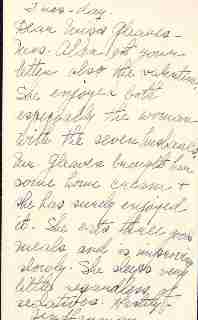 Tues-day.
Dear Miss Gleaves -
Mrs. Allen got your
letter also the valentine
She enjoyed both
especially the woman
with the seven husbands.
Mr Gleaves brought her
some home cream &
she has surely enjoyed
it. She eats three good
meals and is improving
slowly. She sleeps very
little regardless of
sedatives.